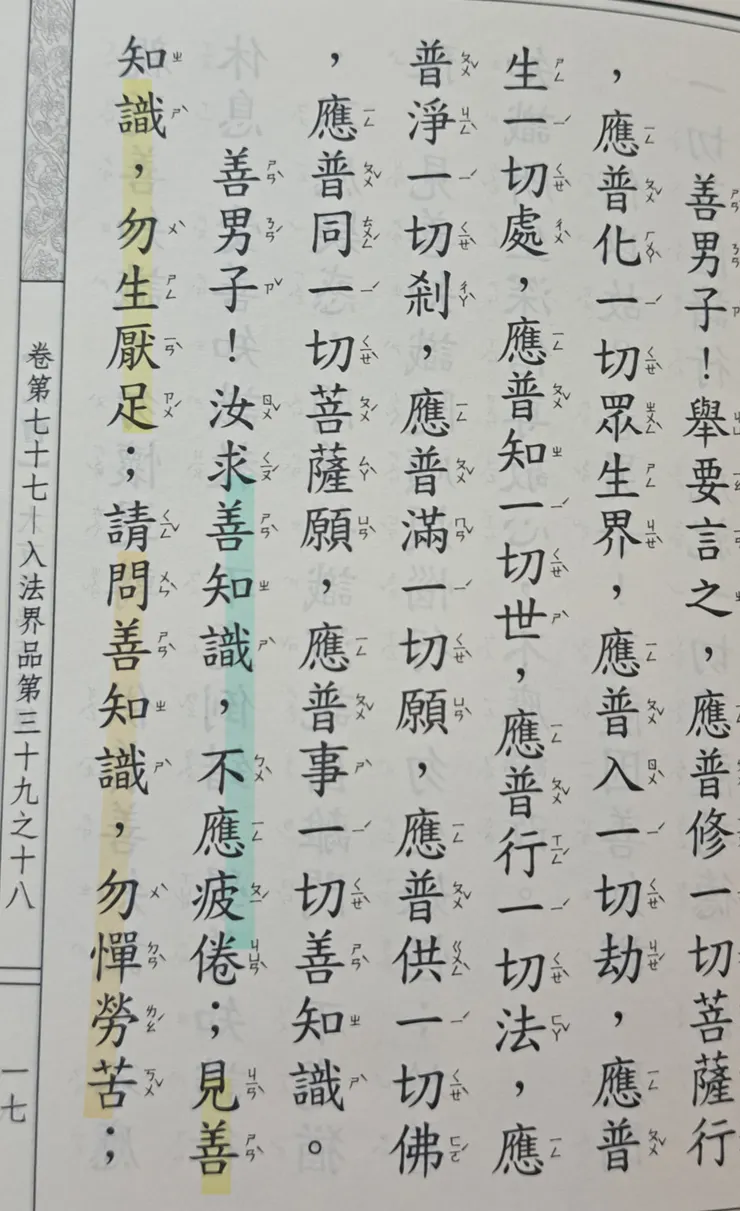 善男子！舉要言之，應普修一切菩薩行
，應普化一切眾生界，應普入一切劫，應普
生一切處，應普知一切世，應普行一切法，應
普淨一切剎，應普滿一切願，應普供一切佛
，應普同一切菩薩願，應普事一切善知識。
善男子！汝求善知識，不應疲倦；見善
知識，勿生厭足；請問善知識，勿憚勞苦；
卷第七十七 入法界品第三十九之十八
一七